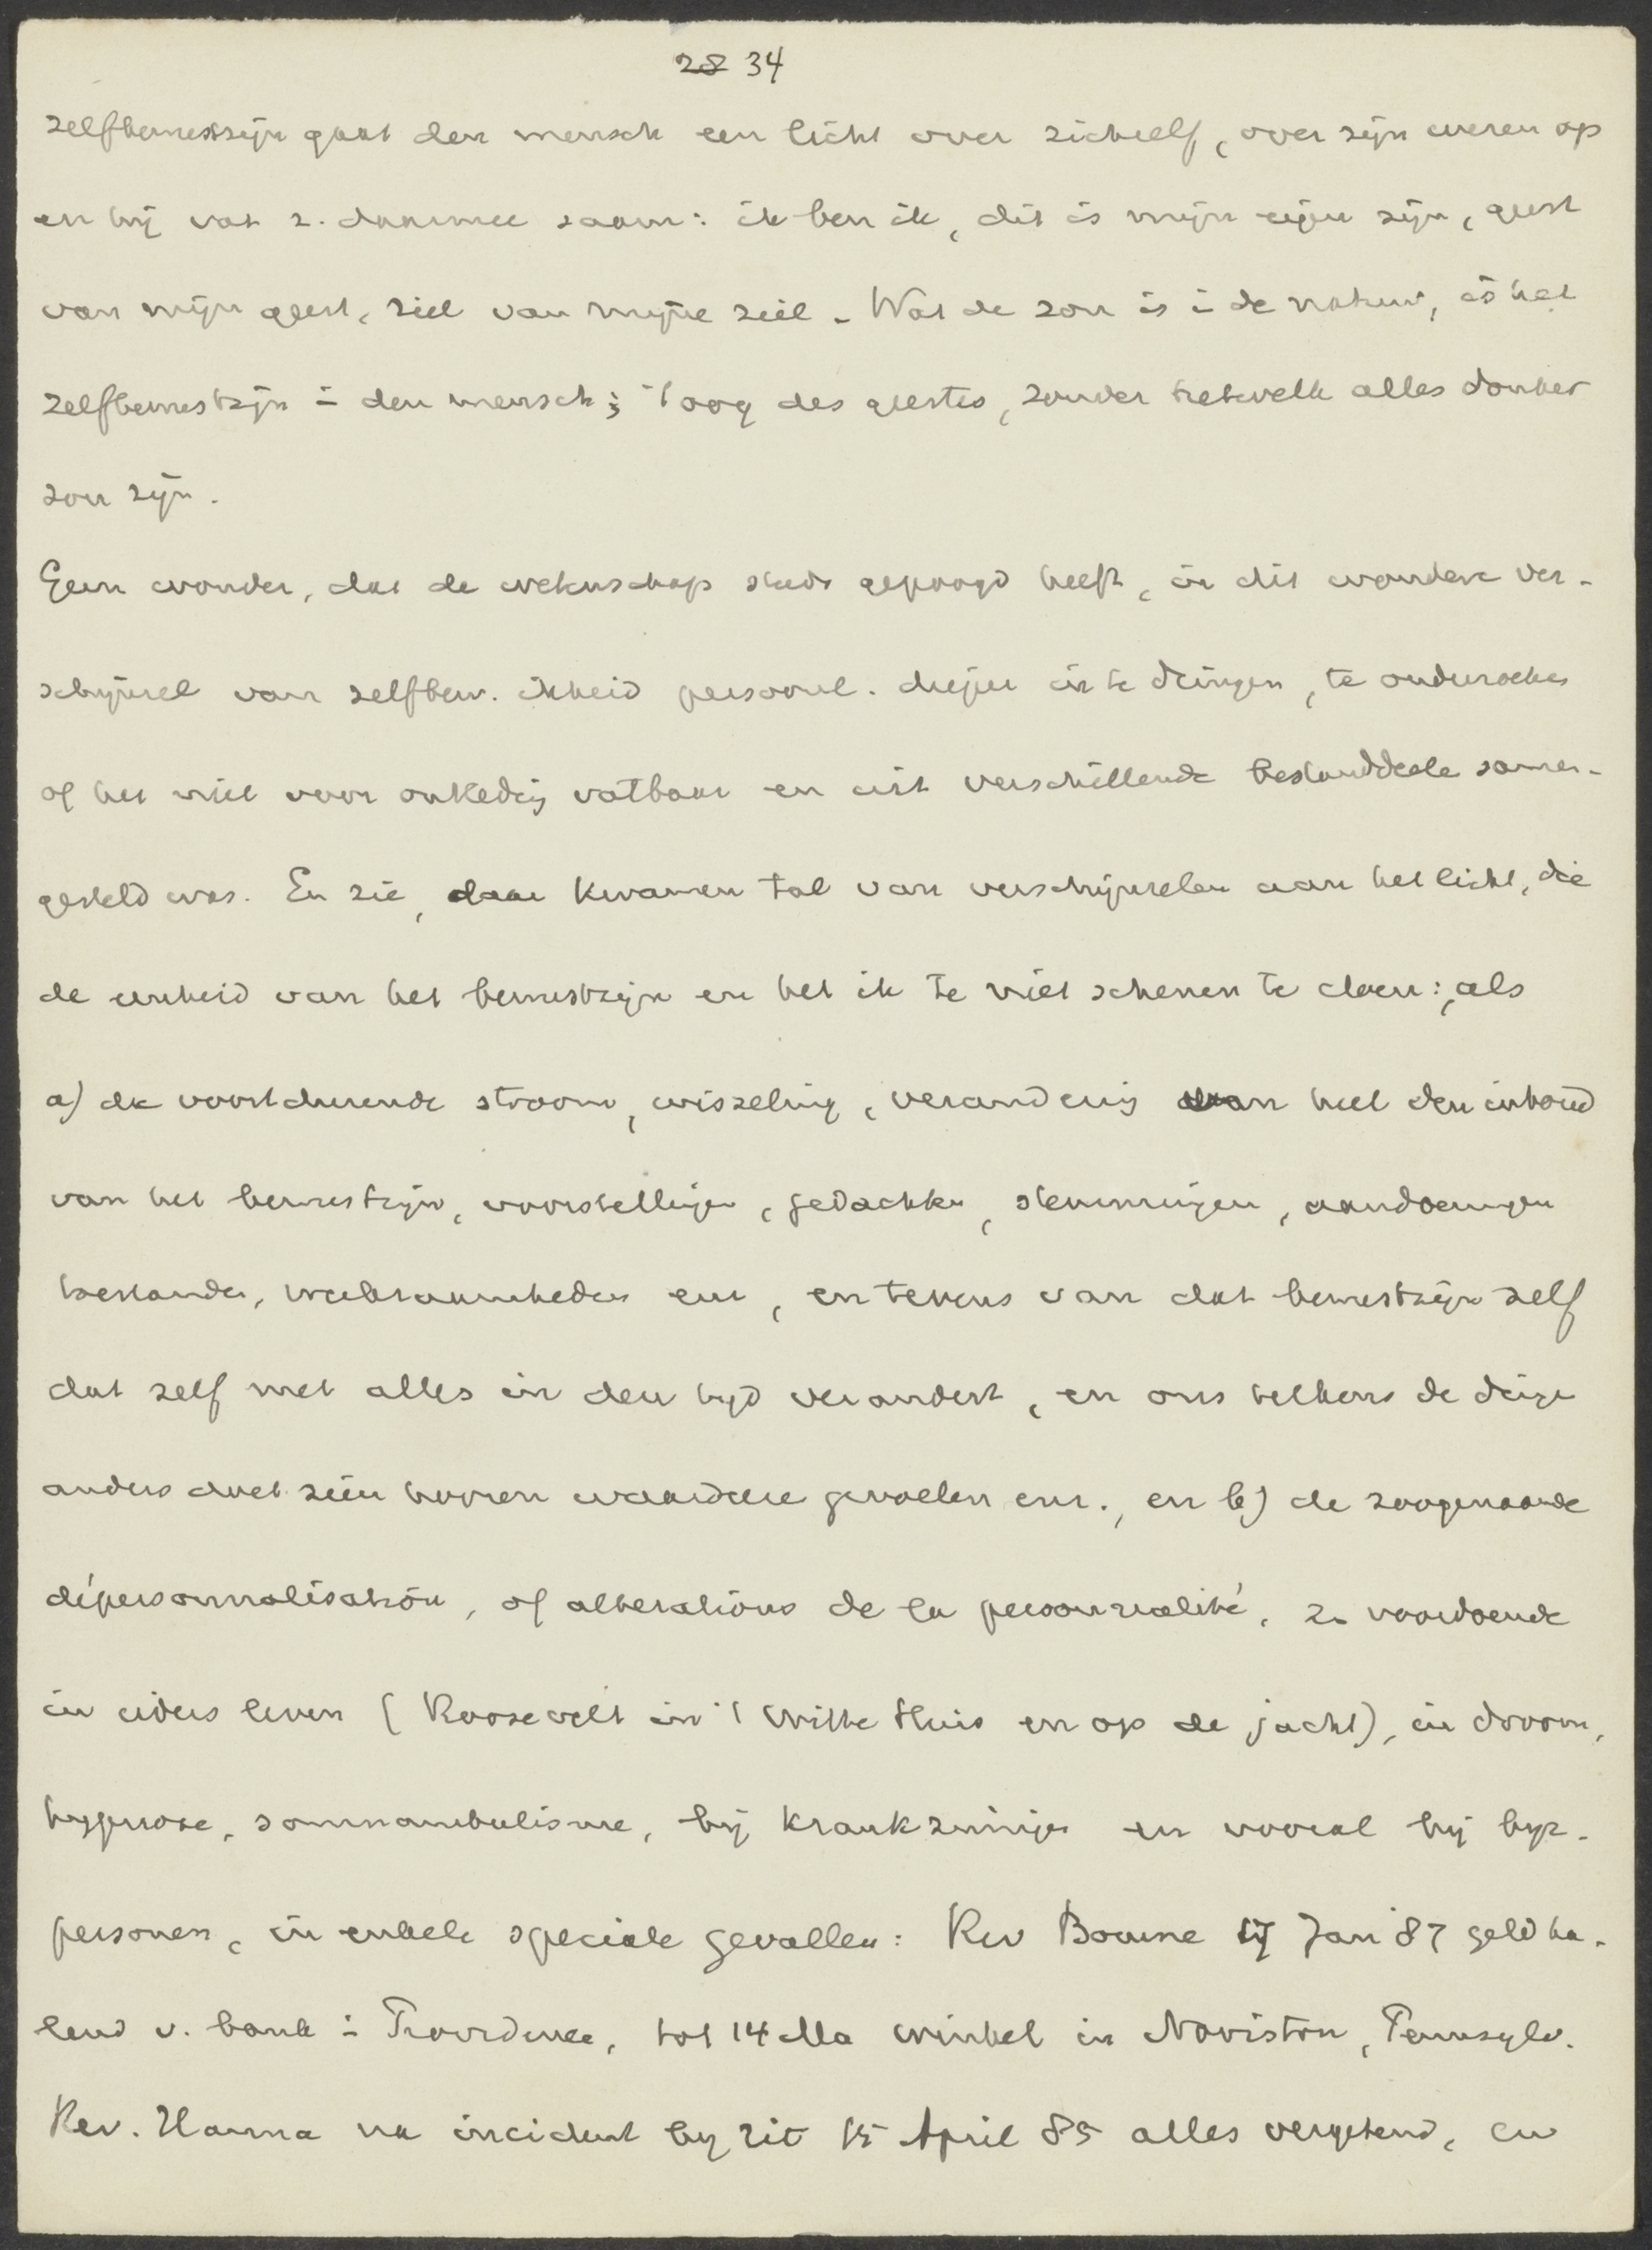 28 34
zelfbewustzijn gaat den mensch een licht over zichzelf, over zijn wezen op
en hij vat z. daarmee saam: ik ben ik, dit is mijn eigen zijn, geest
van mijn geest, ziel van mijne ziel. Wat de zon is i de natuur, is het
zelfbewustzijn i den mensch; 't oog des geestes, zonder hetwelk alles donker
zou zijn.
Geen wonder, dat de wetenschap steeds gepoogd heeft, in dit wondere ver-
schijnsel van zelfbew. ikheid persoonl. dieper in te dringen, te onderzoeken
of het niet voor ontleding vatbaar en uit verschillende bestanddeelen samen-
gesteld was. En zie, daar kwamen tal van verschijnselen aan het licht, die
de eenheid van het bewustzijn en het ik te niet schenen te doen:, als
a) de voortdurende stroom, wisseling, verandering van heel den inhoud
van het bewustzijn, voorstellingen, gedachten, stemmingen, aandoeningen
toestanden, werkzaamheden enz, en tevens van dat bewustzijn zelf
dat zelf met alles in den tijd verandert, en ons telkens de dingen
anders doet zien hooren waardeeren gevoelen enz., en b) de zoogenaamde
dépersonnalisation, of altérations de la personnalité, z. voordoende
in ieders leven (Roosevelt in 't Witte Huis en op de jacht), in droom,
hypnose, somnambulisme, bij krankzinnigen en vooral bij hyp.
personen, in enkele speciale gevallen: Rev Bourne 17 Jan '87 geld ha-
lend v. bank i Providence, tot 14 Ma winkel in Noriston, Pennsylv.
Rev. Hanna na incident by rit 15 April 85 alles vergetend, en